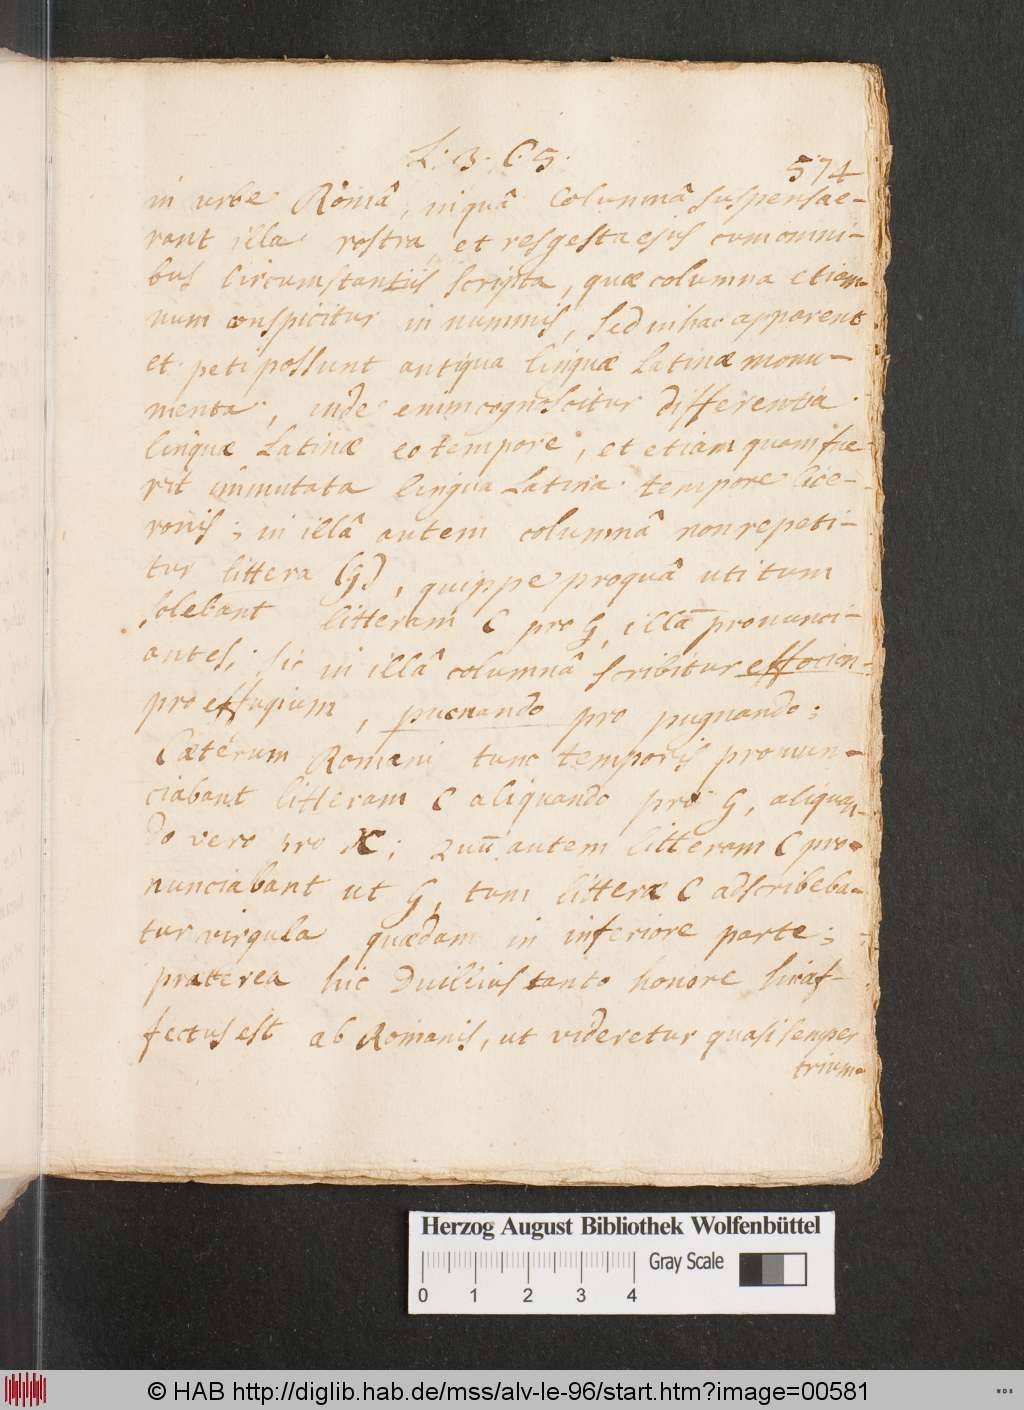 L. 3. C. 5.
574
in urbe Româ, in quâ Columnâ suspensae-
rant illa rostra, et res gesta ejus cum omni-
bus Circumstantiis scripta, quæ columna etiam-
num conspicitur in nummis, sed in hac apparent
et peti possunt antiqua linguæ Latinæ monu-
menta, inde enim cognoscitur differentia
linguæ Latinæ eo tempore, et etiam quam fue-
rit immutata lingua Latina tempore Cice-
ronis; in illâ autem columnâ non repeti-
tur littera (G), quippe pro quâ uti tum
solebant litteram C pro G, illā pronunci-
antes; sic in illâ columnâ scribitur effocion-
pro effugium, pucnando pro pugnando;
Cæterum Romani tunc temporis pronun-
ciabant litteram C aliquando pro G, aliquan-
do vero pro K; quū autem litteram C pro-
nunciabant ut G, tum litteræ C adscribeba-
tur virgula quædam in inferiore parte;
præterea hic Duillius tanto honore hic af-
fectus est ab Romanis, ut videretur quasi semper
trium-
Herzog August Bibliothek Wolfenbüttel
0 1 2 3 4
Gray Scale
© HAB http://diglib.hab.de/mss/alv-le-96/start.htm?image=00581
WDB